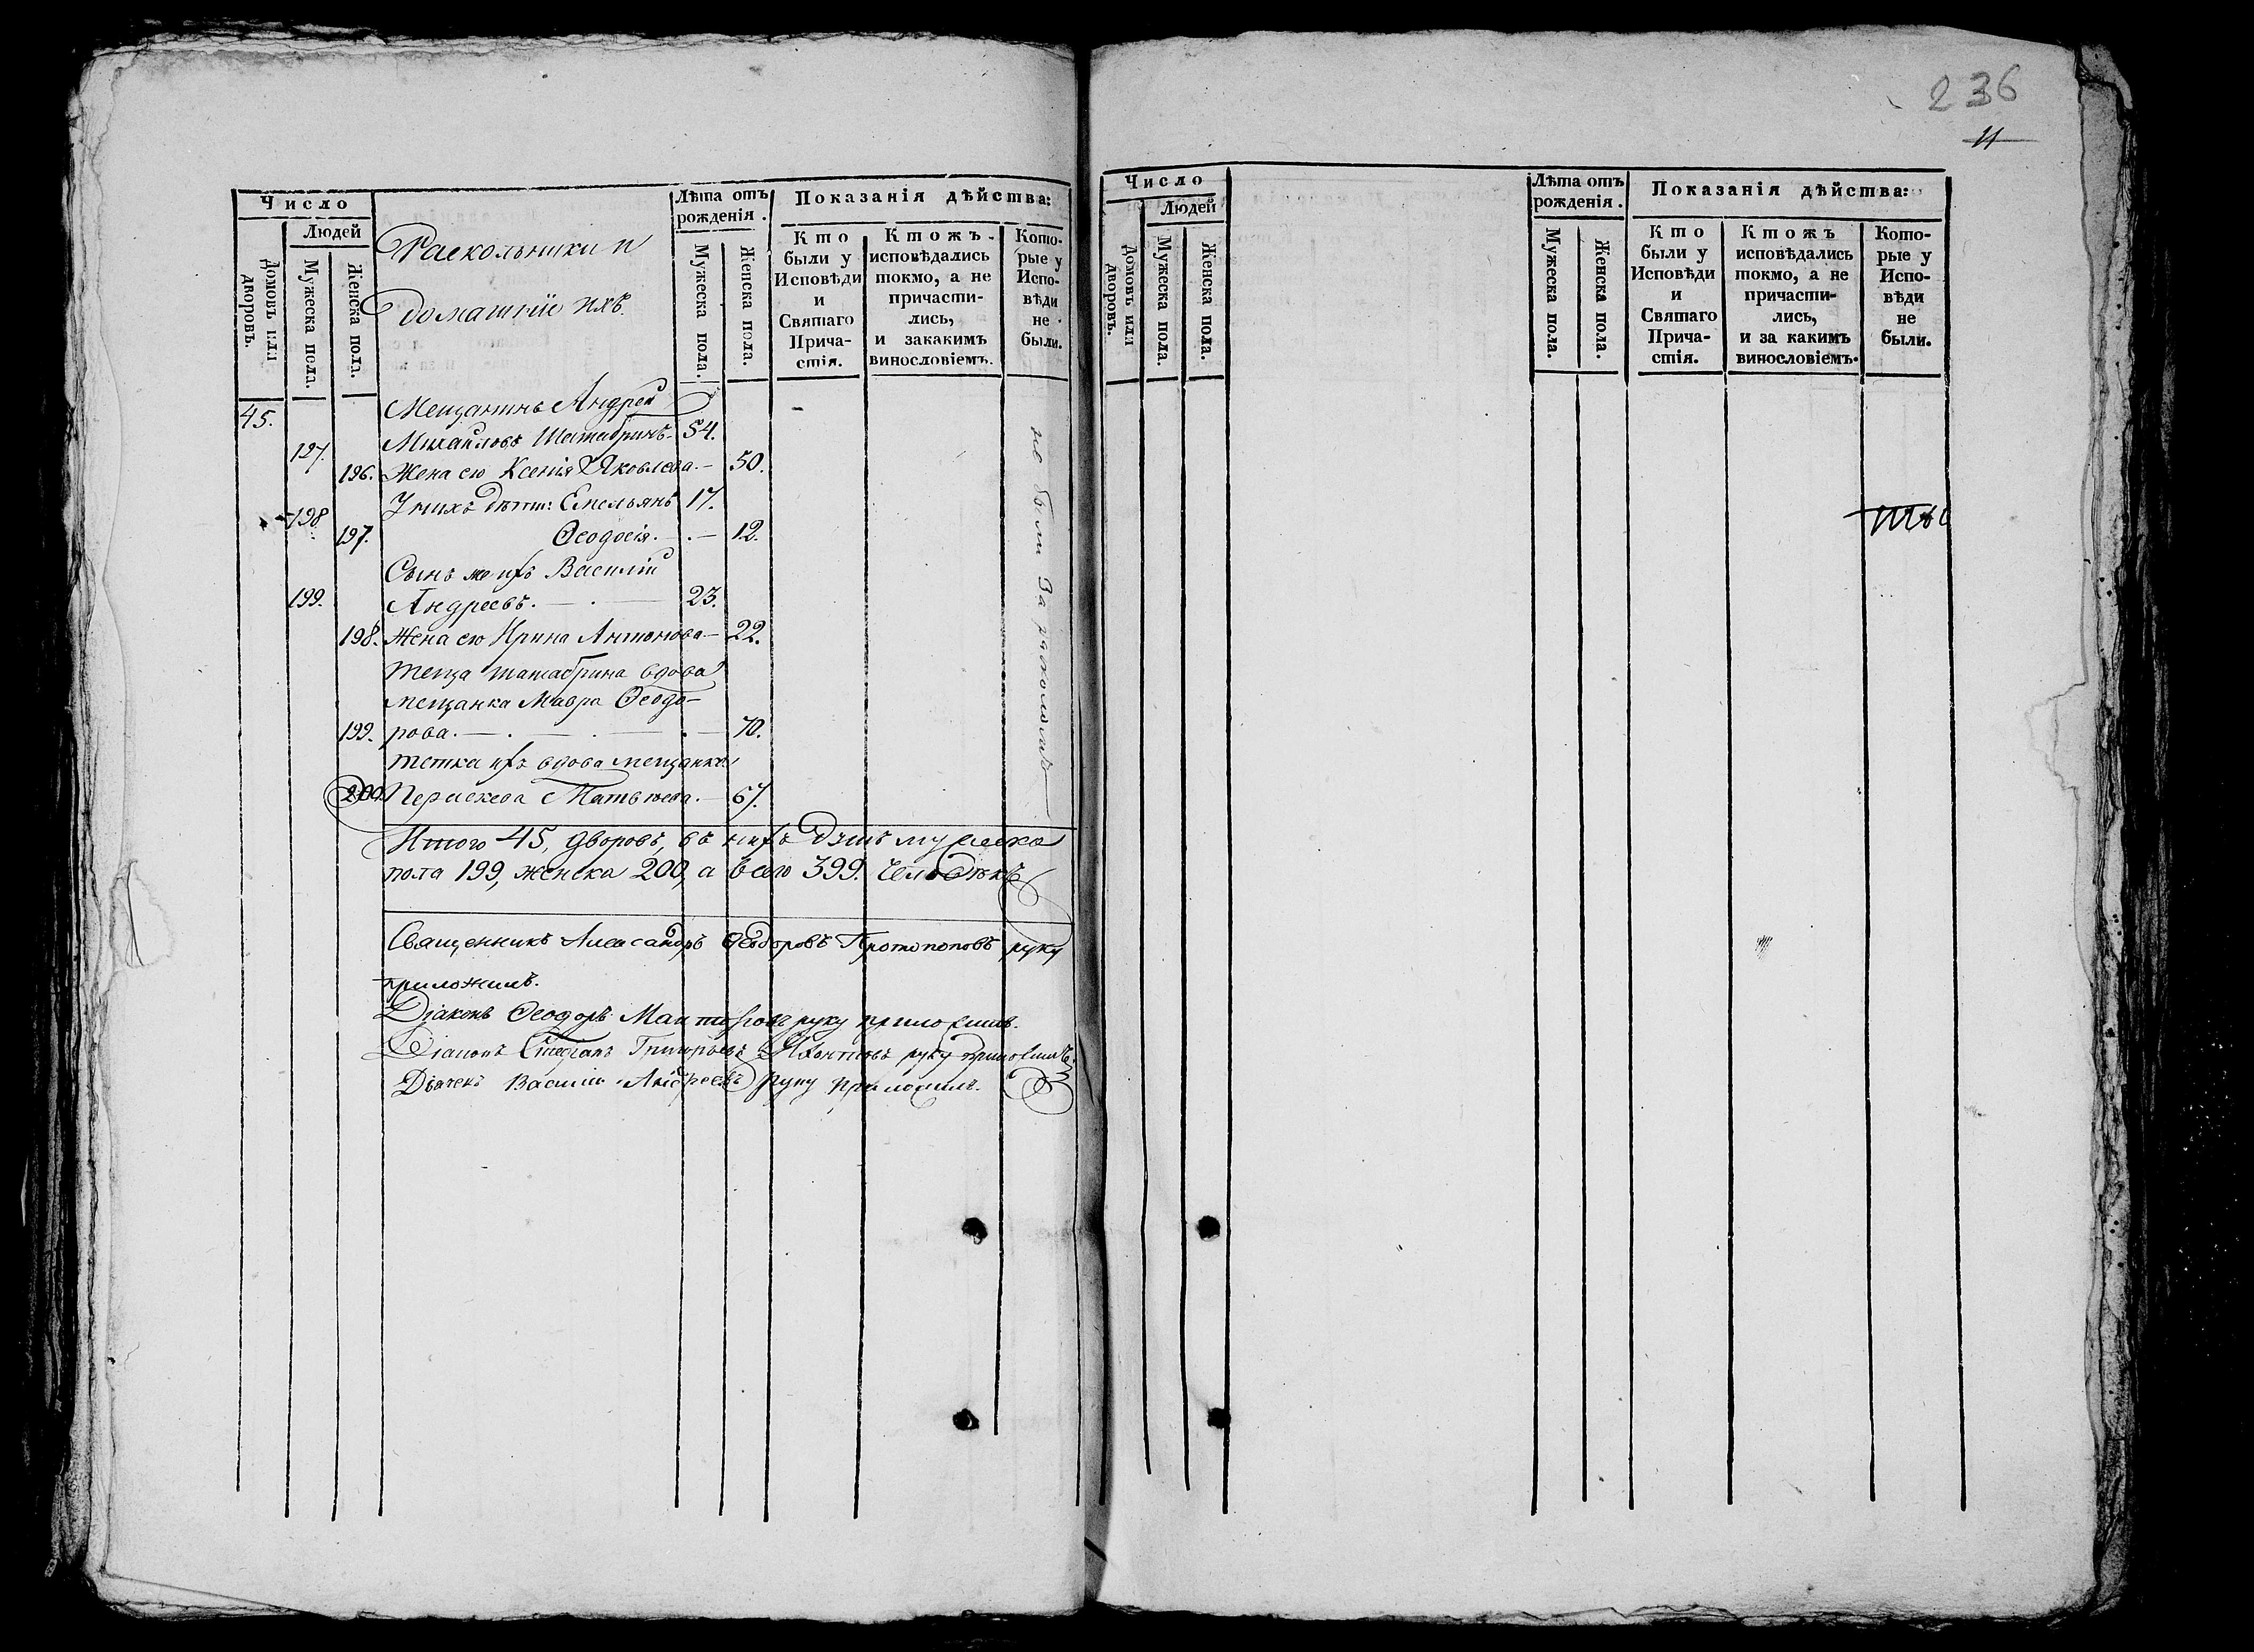 236
11
Число
Людей
Домовъ или дворовъ.
Мужеска пола.
Женска пола.
Раскольники и
домашніе ихъ.
Лѣта отъ
рожденія.
Мужеска пола.
Женска пола.
Показанія дѣйства:
Кто
были у
Исповѣди
и
Святаго
Прича-
стія.
Ктожъ
исповѣдались
токмо, а не
причасти-
лись,
и закакимъ
винословіемъ.
Кото-
рые у
Испо-
вѣди
не
были.
45. Мещанинъ Андрей
197. Михайловъ 54.
196. Жена его Ксенія Яковлева. — 50.
198 У нихъ дѣти: Емельянъ 17.
197. Ѳеодосія. — . — 12.
Сынъ же ихъ Василій
199. Андреевъ. — . — 23.
198. Жена его Ирина Антонова — 22.
теща вдова
мещанка Мавра Ѳеодо-
199. рова. — . — . — . — 70.
тетка ихъ вдова мещанка
200. Матвѣева. — 67.
не были За расколомъ
Итого 45, дворовъ, въ нихъ душъ мужеска
пола 199, женска 200, а всего 399. человѣкъ
Священникъ Александръ Ѳеодоровъ Протопоповъ руку
приложилъ.
Діаконъ Ѳеодоръ руку приложилъ.
Діаконъ Стефанъ Григорьевъ руку приложилъ.
Дьячекъ Василій Андреевъ руку приложилъ.
Число
Людей
Домовъ или дворовъ.
Мужеска пола.
Женска пола.
Лѣта отъ
рожденія.
Мужеска пола.
Женска пола.
Показанія дѣйства:
Кто
были у
Исповѣди
и
Святаго
Прича-
стія.
Ктожъ
исповѣдались
токмо, а не
причасти-
лись,
и за какимъ
винословіемъ.
Кото-
рые у
Испо-
вѣди
не
были.